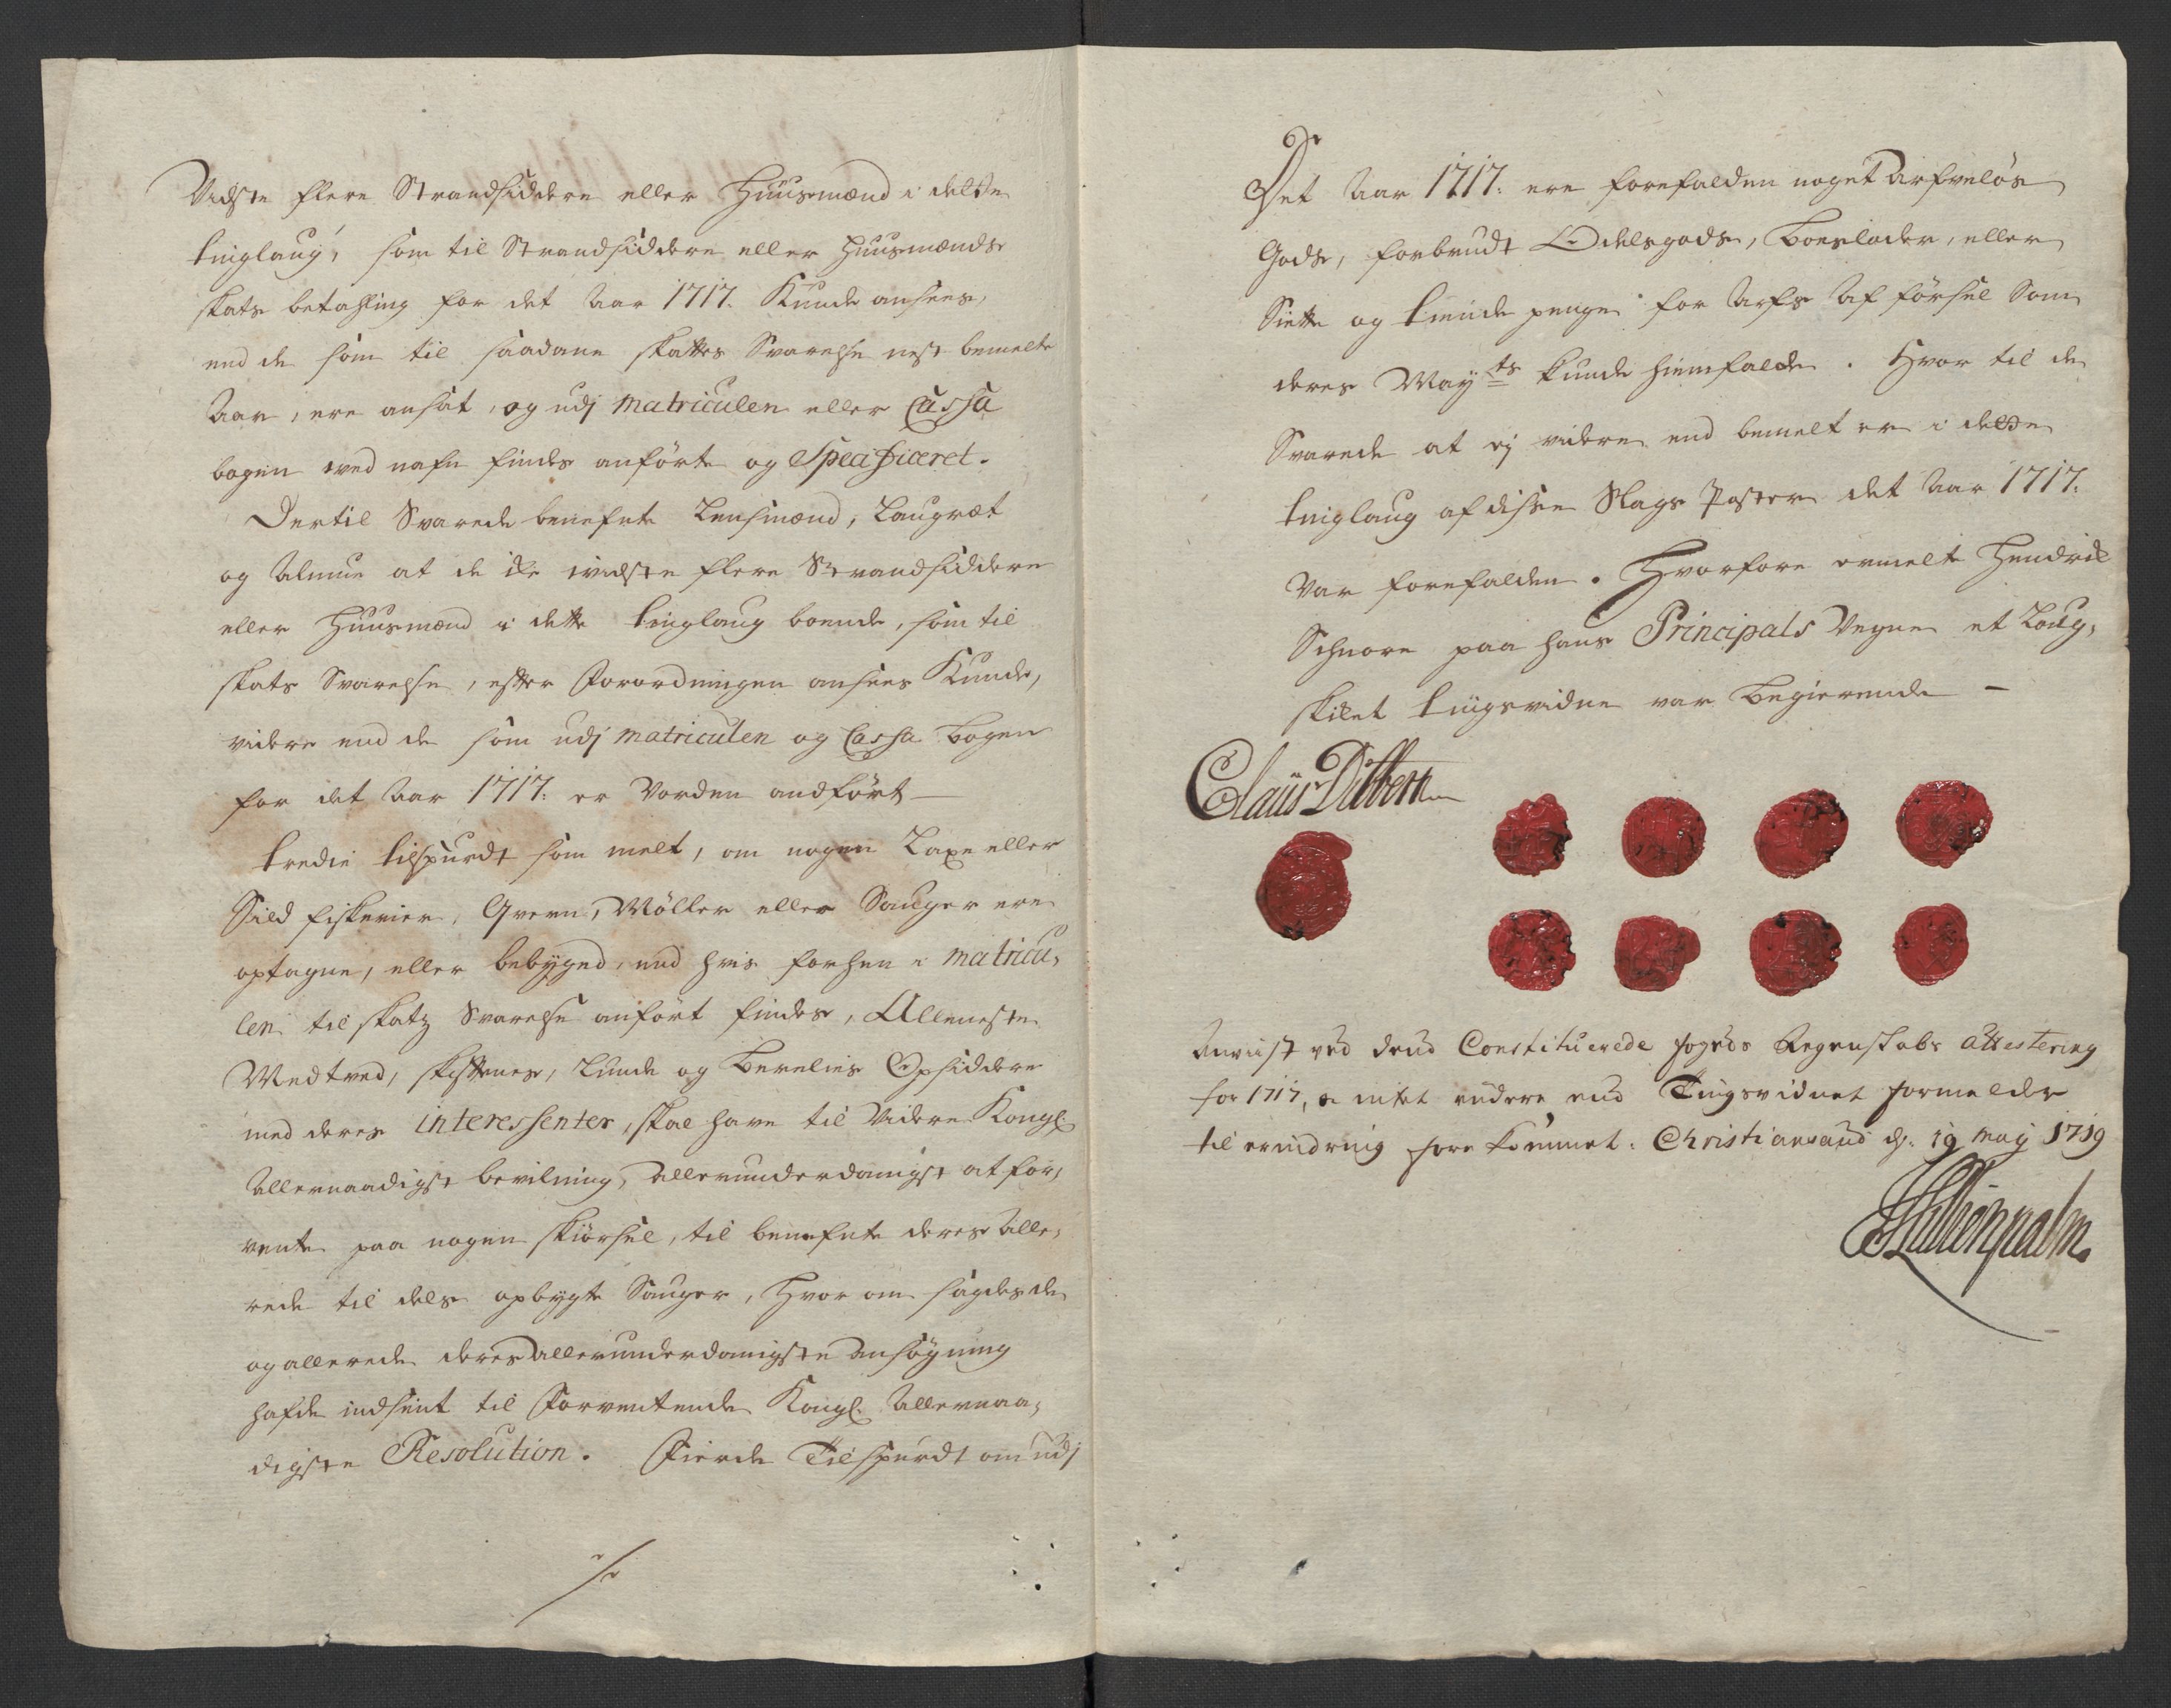 Vidste flere Strandsiddere eller Huusmænd i dette
tinglaug, som til Strandsiddere eller Huusmænds
skats betahling for det Aar 1717. Kunde ansees,
end de som til saadane skattes Svarelse nest bemelte
Aar, ere ansat, og udj Matriculen eller Cassa
bogen ved nafn findes anførte og Specificeret.
Dertil Svarede benefnte Lensmænd, Laugræt
og Almue at de icke vidste flere Strandsiddere
eller Huusmænd i dette tinglaug boende, som til
skats Svarelse, efter Forordningen ansees Kunde,
videre end de som udj matriculen og Cassa bogen
for det Aar 1717. er vorden andført
tredie tilspurdt som melt, om nogen Laxe eller
Sild fiskerier, Qvern, Møller eller Sauger ere
optagne, eller bebygged, end hvis forhen i matricu,
len til skatz Svarelse anført findes, Alleneste
Medtved, skiftenes, Lunde og Berelies Opsiddere
med deres interessenter, skal have til Videre Kongl.
Allernaadigst bevilning, allerunderdanigst at for,
vente paa nogen skiørsel, til benefnte deres alle,
rede til dels opbygte Sauger, Hvor om sagdes de
og allerede deres allerunderdanigste Ansøgning
hafde indsent til Forventende Kongl. Allernaa,
digste Resolution. Fierde Tilspurdt om udj
Det Aar 1717. ere forefalden noget Arfveløs
Gods, forbrudt Odelsgods, Boeslader, eller
Siette og tiende penge for Arfs Af førsel Som
deres Mayts kunde hiemfalde. Hvor til de
Svarede at ej videre end bemelt er i dette
tinglaug af disse Slags Poster det Aar 1717.
var forefalden. Hvorfore ermelte Hendrik
Schnore paa hans Principals Vegne et Laug,
skilet tingsvidne var Begierende
Claus Dibbern
Anviist ved dend Constituerede fogeds Regenskabs Attestering
for 1717, er intet videre end Tingsvidnet formelder
til erindring forekommet. Christiansand d. 19 Maij 1719
Lillienpalm